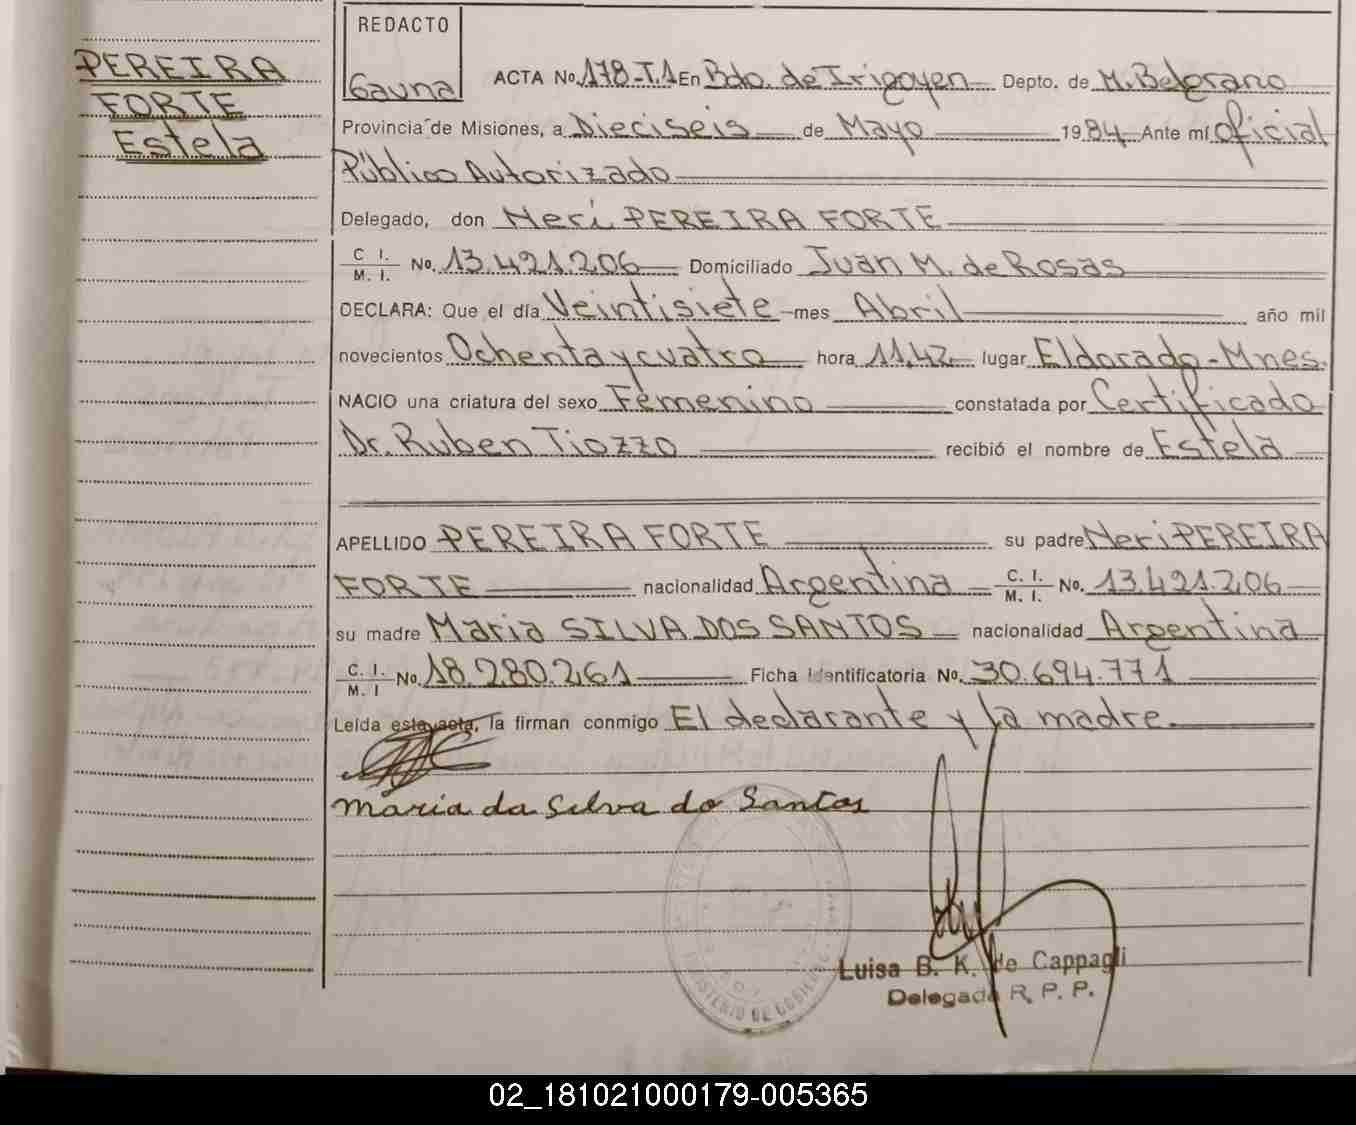 PEREIRA
FORTE
Estela
REDACTO
Gauna
ACTA No. 178-T.1 En Bdo. de Irigoyen Depto. de M. Belgrano
Provincia de Misiones, a Dieciseis de Mayo 1984 Ante mí Oficial
Público Autorizado
Delegado, don Neri PEREIRA FORTE
C. I. / M. I. No. 13.421.206 Domiciliado Juan M. de Rosas
DECLARA: Que el día Veintisiete mes Abril año mil
novecientos Ochenta y cuatro hora 11,42 lugar Eldorado - Mnes.
NACIO una criatura del sexo Femenino constatada por Certificado
Dr. Ruben Tiozzo recibió el nombre de Estela
APELLIDO PEREIRA FORTE su padre Neri PEREIRA
FORTE nacionalidad Argentina C. I. / M. I. No. 13.421.206
su madre Maria SILVA DOS SANTOS nacionalidad Argentina
C. I. / M. I No. 18.280.261 Ficha Identificatoria No. 30.694.771
Leída esta acta, la firman conmigo El declarante y la madre.
maria da Silva do Santos
MINISTERIO DE GOBIERNO
Luisa B. K. de Cappagli
Delegada R. P. P.
02_181021000179-005365